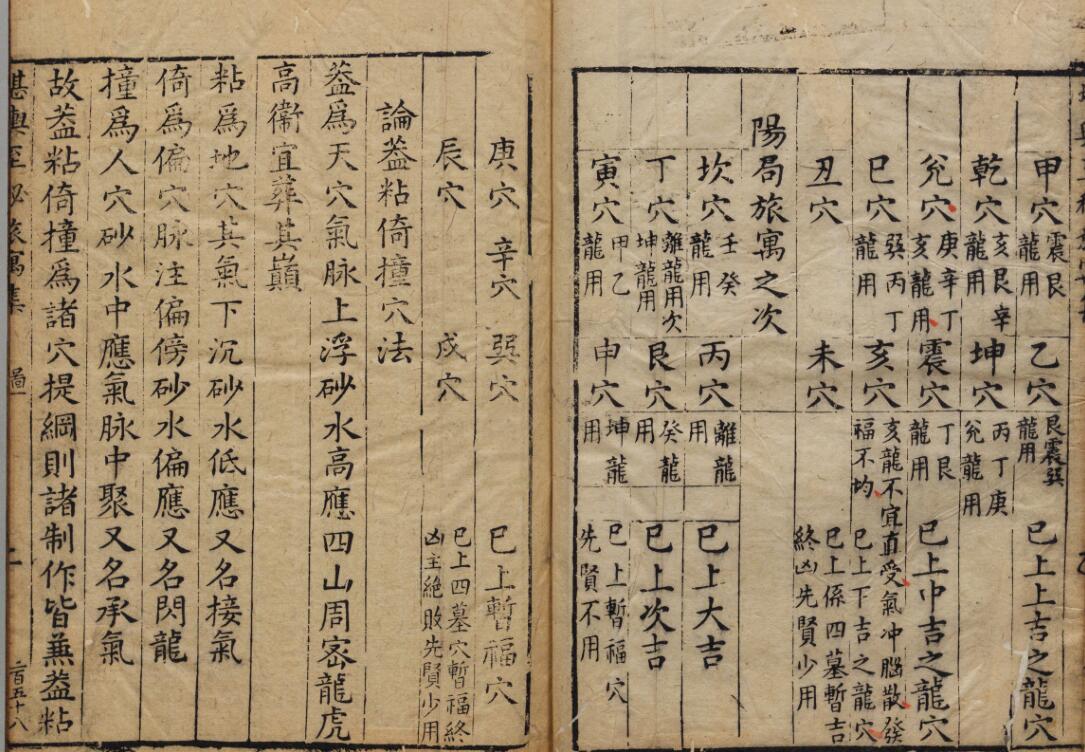 甲穴 震艮龍用 乙穴 艮震巽龍用 已上上吉之龍穴
乾穴 亥艮辛龍用 坤穴 丙丁庚兊龍用
兊穴 庚辛丁亥龍用 震穴 丁艮龍用 已上中吉之龍穴
巳穴 巽丙丁龍用 亥穴 亥龍不宜直受氣冲腦散發福不均 已上下吉之龍穴
丑穴 未穴 已上係四墓暫吉終凶先賢少用
陽局旅寓之次
坎穴 壬癸龍用 丙穴 離龍用 已上大吉
丁穴 離龍用次坤龍用 艮穴 癸龍用 已上次吉
寅穴 甲乙龍用 申穴 坤龍用 已上暫福穴先賢不用
庚穴 辛穴 巽穴 已上暫福穴
辰穴 戌穴 已上四墓穴暫福終凶主絶敗先賢少用
論葢粘倚撞穴法
葢爲天穴氣脉上浮砂水高應四山周宻龍虎
高衛宜葬其巔
粘爲地穴其氣下沉砂水低應又名接氣
倚爲偏穴脉注偏傍砂水偏應又名閃龍
撞爲人穴砂水中應氣脉中聚又名承氣
故葢粘倚撞爲諸穴提綱則諸制作皆兼葢粘
堪輿至秘旅寓集 二百五十八